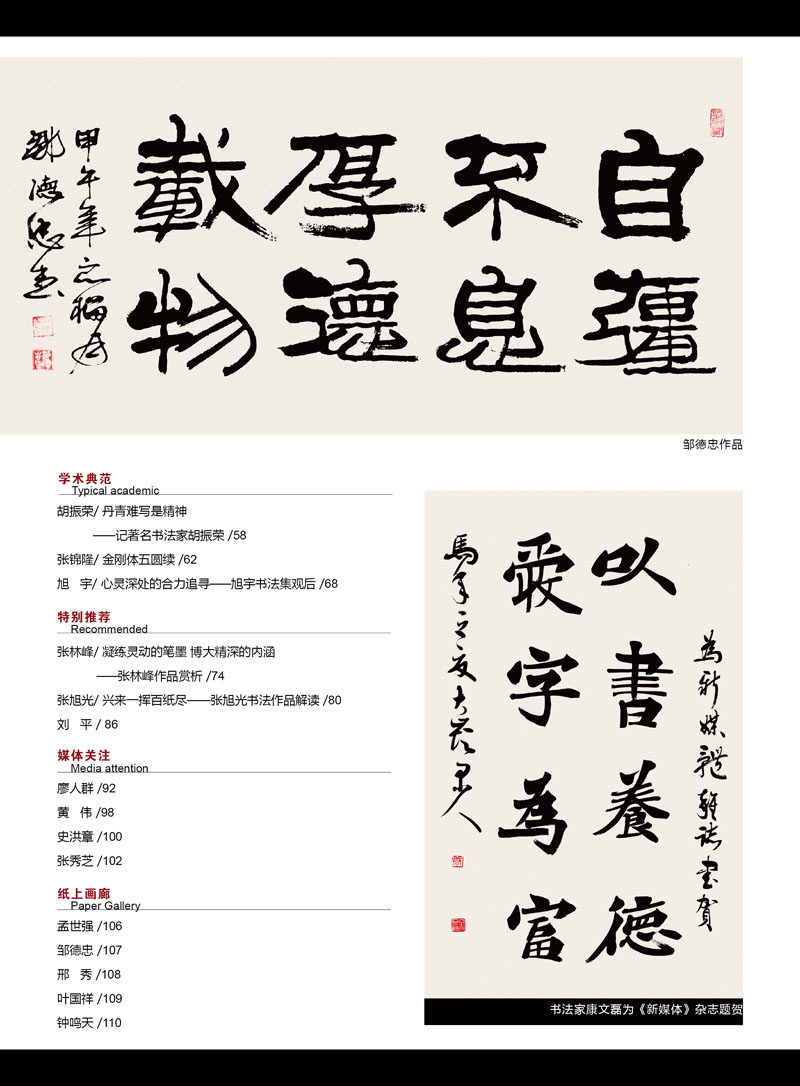 自彊
不息
厚德
載物
甲午年之
鄒德忠書
邹德忠作品
学术典范
Typical academic
胡振荣/ 丹青难写是精神
——记著名书法家胡振荣 /58
张锦隆/ 金刚体五圆续 /62
旭 宇/ 心灵深处的合力追寻——旭宇书法集观后 /68
特别推荐
Recommended
张林峰/ 凝练灵动的笔墨 博大精深的内涵
——张林峰作品赏析 /74
张旭光/ 兴来一挥百纸尽——张旭光书法作品解读 /80
刘 平 / 86
媒体关注
Media attention
廖人群 /92
黄 伟 /98
史洪章 /100
张秀芝 /102
纸上画廊
Paper Gallery
孟世强 /106
邹德忠 /107
邢 秀 /108
叶国祥 /109
钟鸣天 /110
為新媒體雜誌書賀
以書養德
愛字為富
馬年之夏大
书法家康文磊为《新媒体》杂志题贺